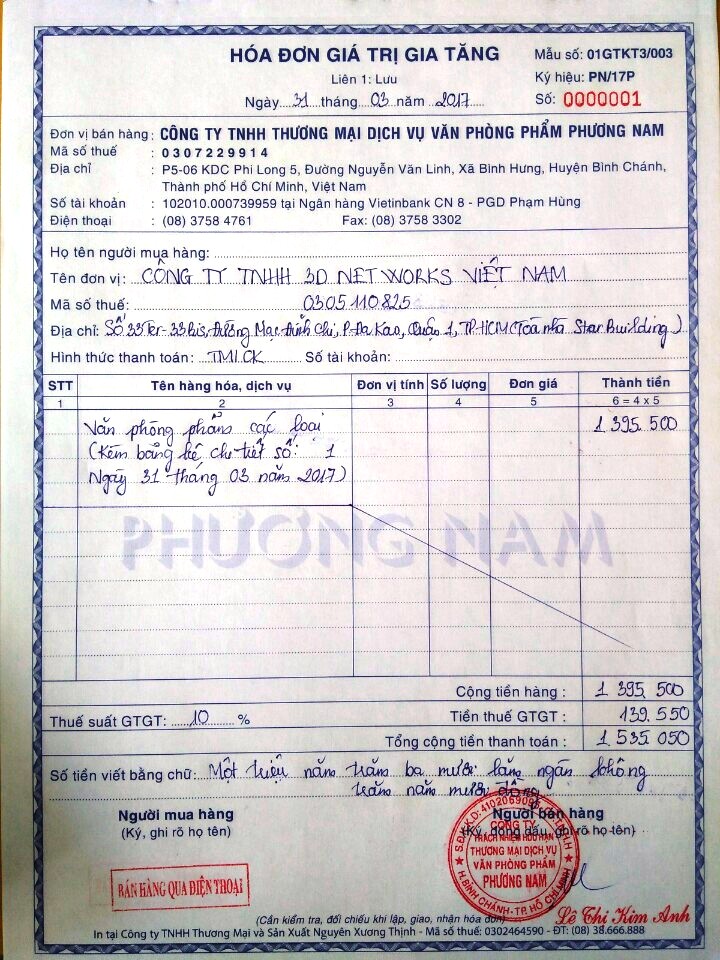 HÓA ĐƠN GIÁ TRỊ GIA TĂNG
Mẫu số: 01GTKT3/003
Liên 1: Lưu
Ký hiệu: PN/17P
Ngày 31 tháng 03 năm 2017
Số: 0000001
Đơn vị bán hàng: CÔNG TY TNHH THƯƠNG MẠI DỊCH VỤ VĂN PHÒNG PHẨM PHƯƠNG NAM
Mã số thuế : 0307229914
Địa chỉ : P5-06 KDC Phi Long 5, Đường Nguyễn Văn Linh, Xã Bình Hưng, Huyện Bình Chánh,
Thành phố Hồ Chí Minh, Việt Nam
Số tài khoản : 102010.000739959 tại Ngân hàng Vietinbank CN 8 - PGD Phạm Hùng
Điện thoại : (08) 3758 4761 Fax: (08) 3758 3302
Họ tên người mua hàng:
Tên đơn vị: CÔNG TY TNHH 3D NETWORKS VIỆT NAM
Mã số thuế: 0305110825
Địa chỉ: Số 33Ter-33Bis, Đường Mạc Đĩnh Chi, P. Đa Kao, Quận 1, TP-HCM (Toà nhà Star Building)
Hình thức thanh toán: TM/CK Số tài khoản:
STT Tên hàng hóa, dịch vụ Đơn vị tính Số lượng Đơn giá Thành tiền
1 2 3 4 5 6 = 4 x 5
Văn phòng phẩm các loại 1 395 500
(Kèm bảng kê chi tiết số: 1
Ngày 31 tháng 03 năm 2017)
PHƯƠNG NAM
Cộng tiền hàng : 1 395 500
Thuế suất GTGT: 10 % Tiền thuế GTGT : 139.550
Tổng cộng tiền thanh toán : 1 535 050
Số tiền viết bằng chữ: Một triệu năm trăm ba mươi lăm ngàn không
trăm năm mươi đồng
Người mua hàng
(Ký, ghi rõ họ tên)
Người bán hàng
(Ký, đóng dấu, ghi rõ họ tên)
CÔNG TY
TRÁCH NHIỆM HỮU HẠN
THƯƠNG MẠI DỊCH VỤ
VĂN PHÒNG PHẨM
PHƯƠNG NAM
H.BÌNH CHÁNH-TP. HỒ CHÍ MINH
BÁN HÀNG QUA ĐIỆN THOẠI
Lê Thị Kim Anh
(Cần kiểm tra, đối chiếu khi lập, giao, nhận hóa đơn)
In tại Công ty TNHH Thương Mại và Sản Xuất Nguyên Xương Thịnh - Mã số thuế: 0302464590 - ĐT: (08) 38.666.888